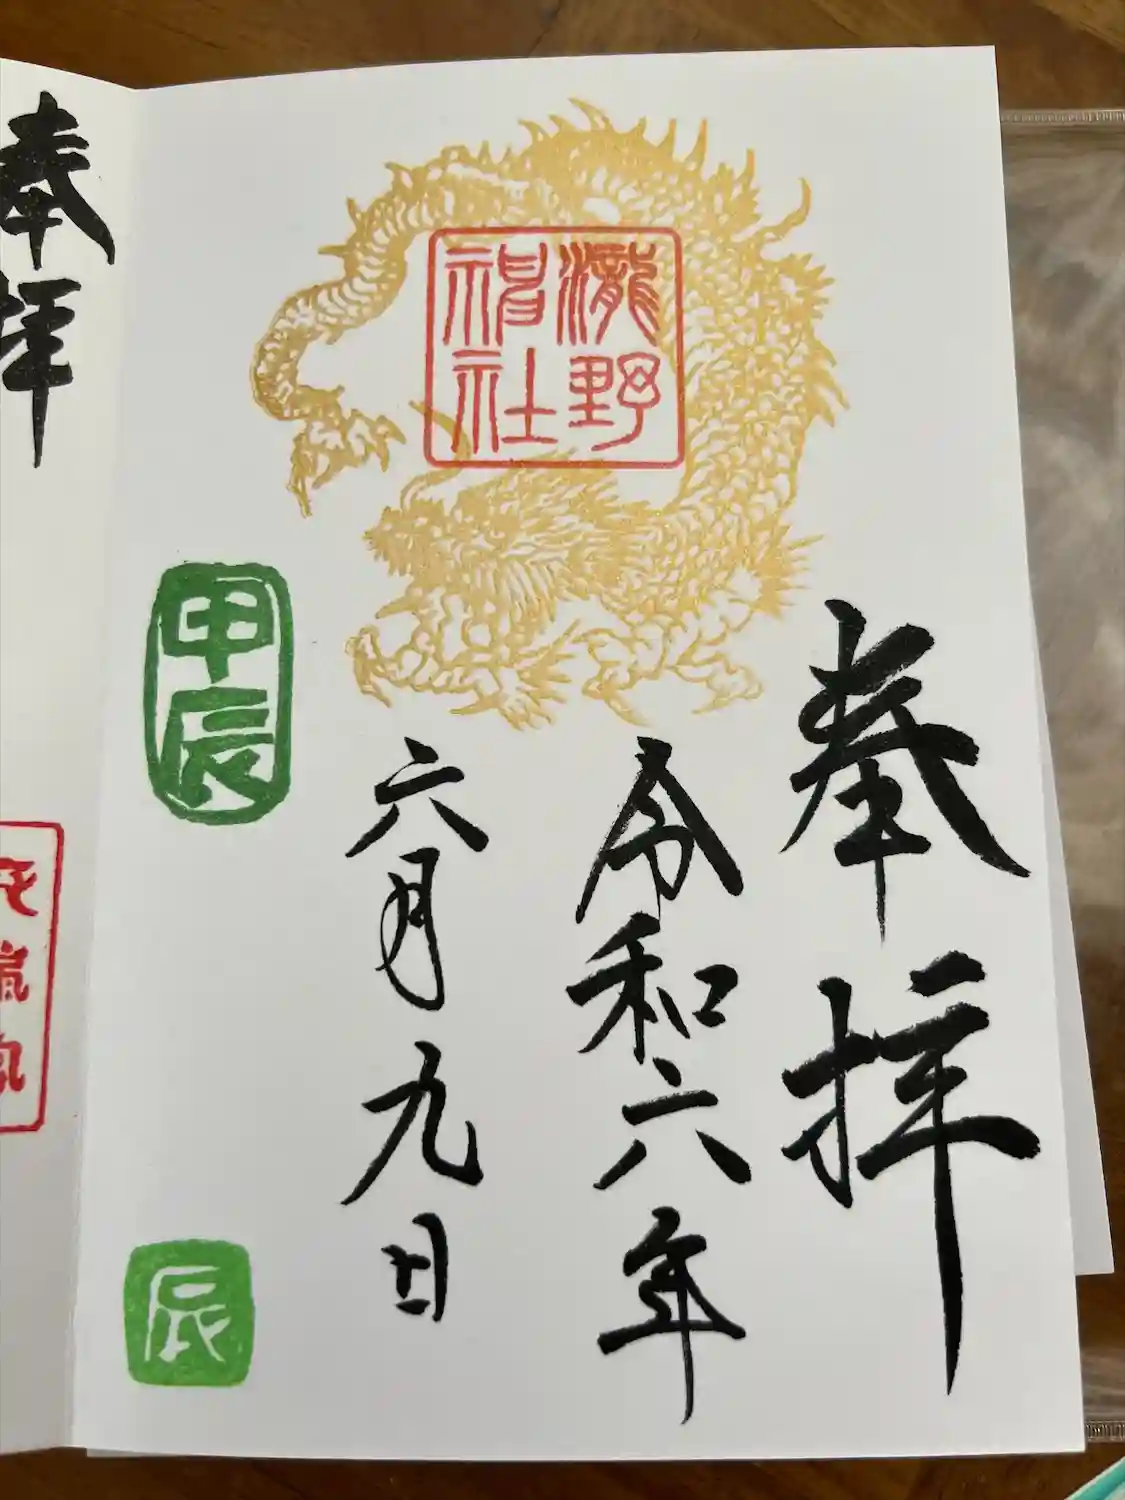 瀧野
神社
奉拝
令和六年
六月九日
甲辰
辰
奉拝